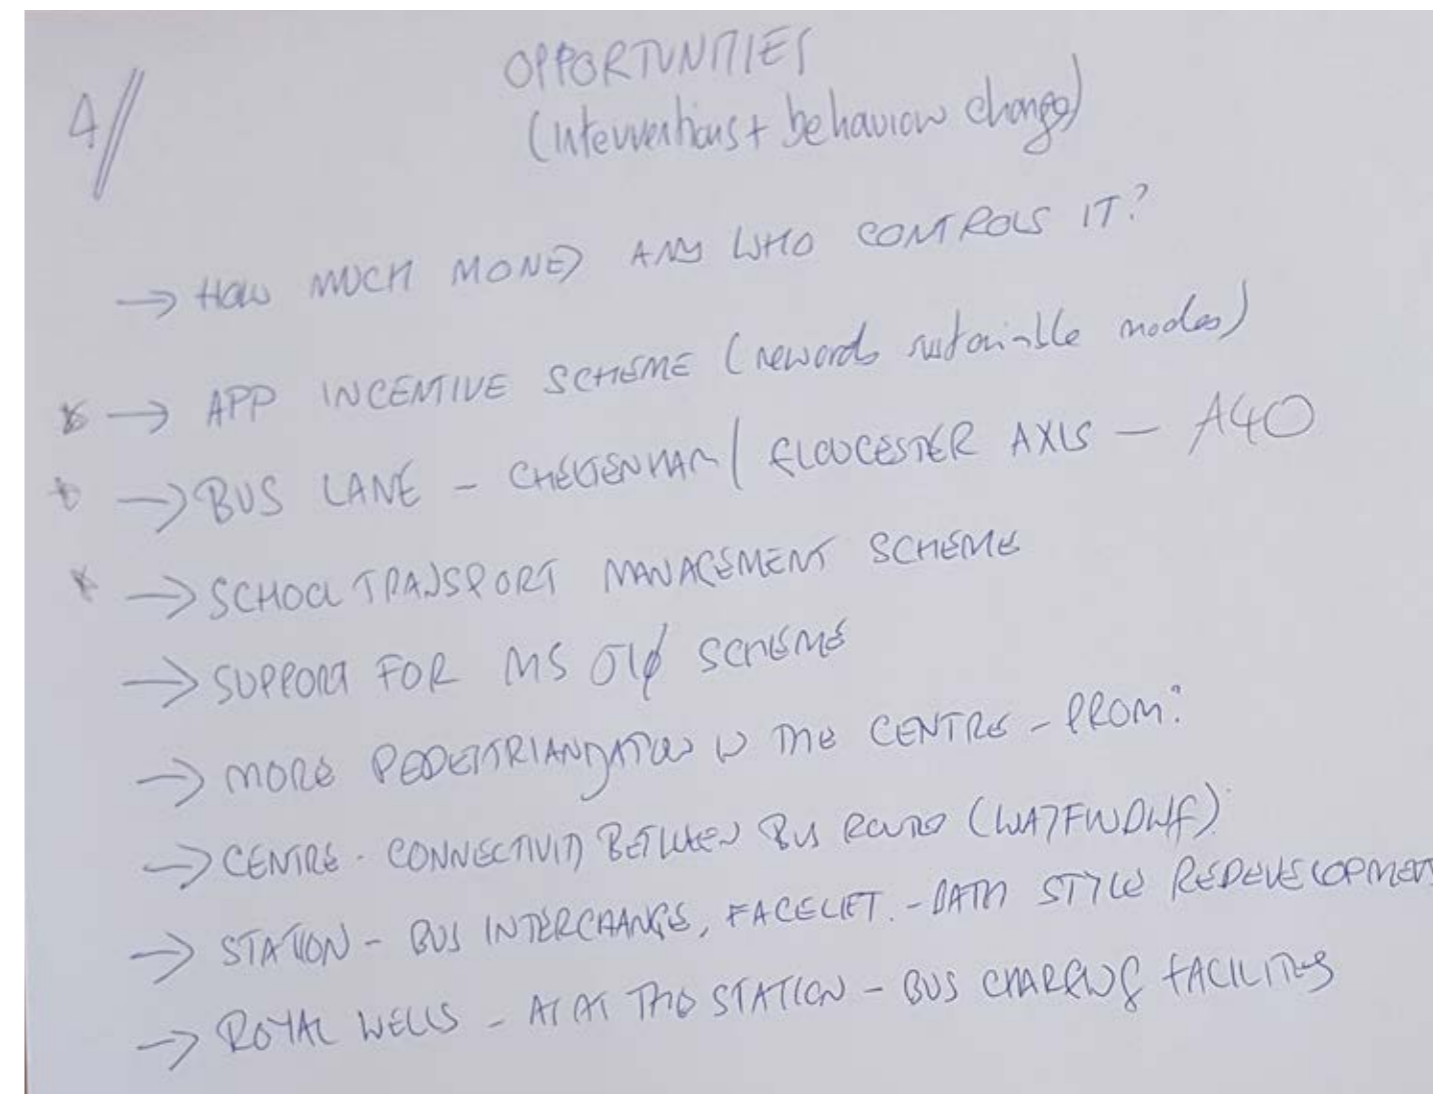 4/
OPPORTUNITIES
(interventions + behaviour change)
→ HOW MUCH MONEY AND WHO CONTROLS IT?
* → APP INCENTIVE SCHEME (rewards sustainable modes)
* → BUS LANE - CHELTENHAM / GLOUCESTER AXIS - A40
* → SCHOOL TRANSPORT MANAGEMENT SCHEME
→ SUPPORT FOR SCHEME
→ MORE PEDESTRIANISATION IN THE CENTRE - PROM?
→ CENTRE - CONNECTIVITY BETWEEN BUS ROUTES
→ STATION - BUS INTERCHANGE, FACELIFT. - BATH STYLE REDEVELOPMENT
→ ROYAL WELLS - THE STATION - BUS CHARGING FACILITIES